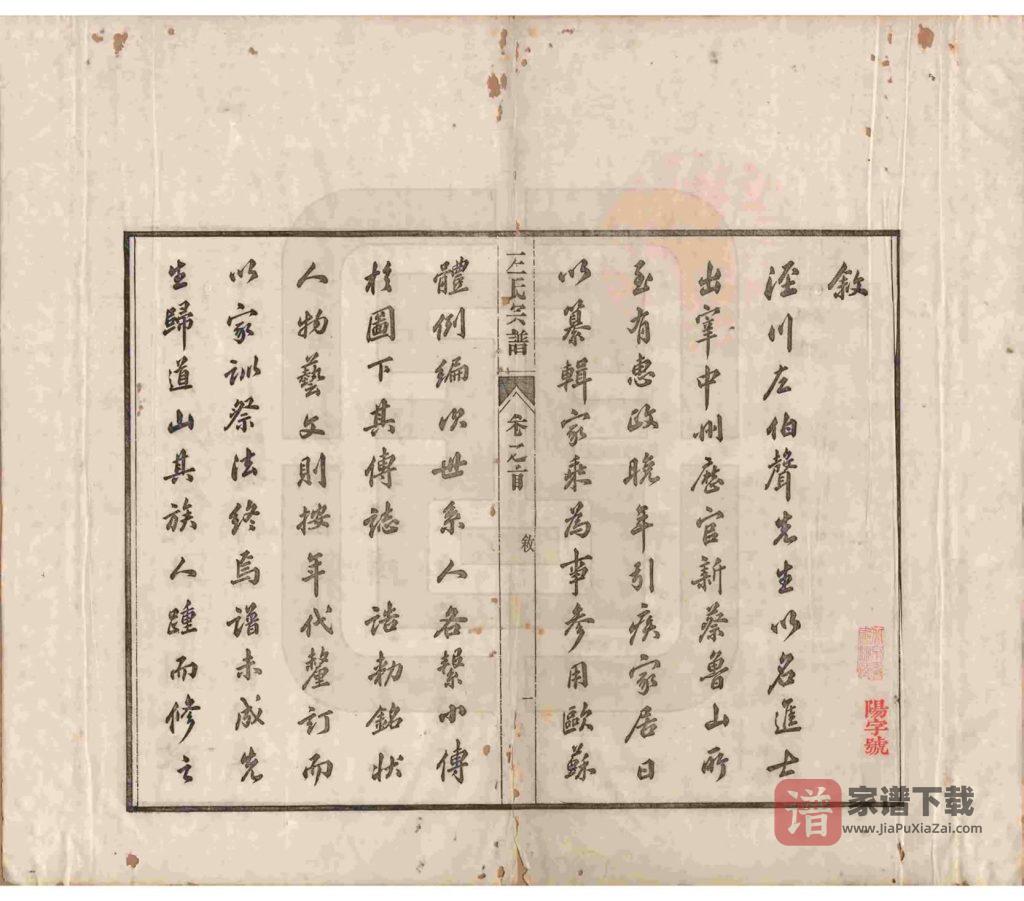 敘
涇川左伯聲先生以名進士
出宰中州應官新蔡魯山所
至有惠政晚年引疾家居日
以纂輯家乘為事參用歐蘇
左氏宗譜 卷之首 敘 一
體例編次世系人各繫小傳
於圖下其傳誌 誥勅銘狀
人物藝文則按年代釐訂而
以家訓祭法終焉譜未成先
生歸道山其族人踵而修之
陽字號
谱 家谱下载
www.JiaPuXiaZai.com